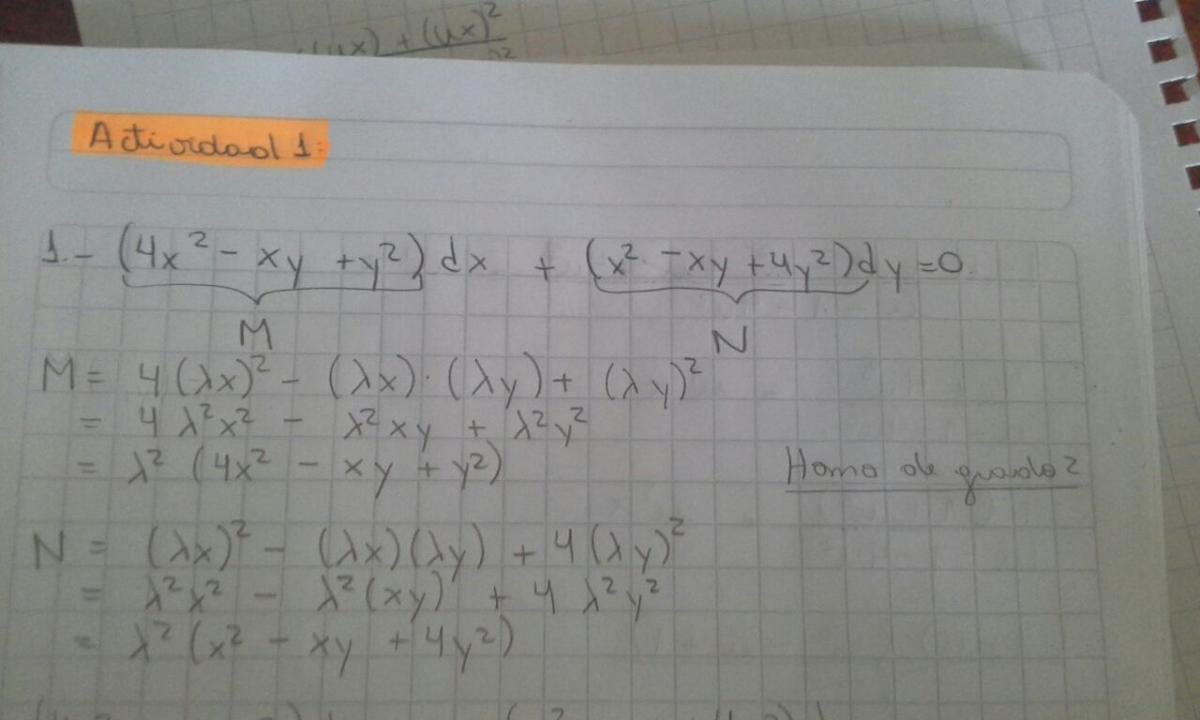 (ux)² 
Actividad 1:
1.- (4x² - xy + y²) dx + (x² - xy + 4y²) dy = 0
M N
M = 4(λx)² - (λx)·(λy) + (λy)²
= 4λ²x² - λ²xy + λ²y²
= λ² (4x² - xy + y²)
Homo de grado 2
N = (λx)² - (λx)(λy) + 4(λy)²
= λ²x² - λ²(xy) + 4λ²y²
= λ² (x² - xy + 4y²)